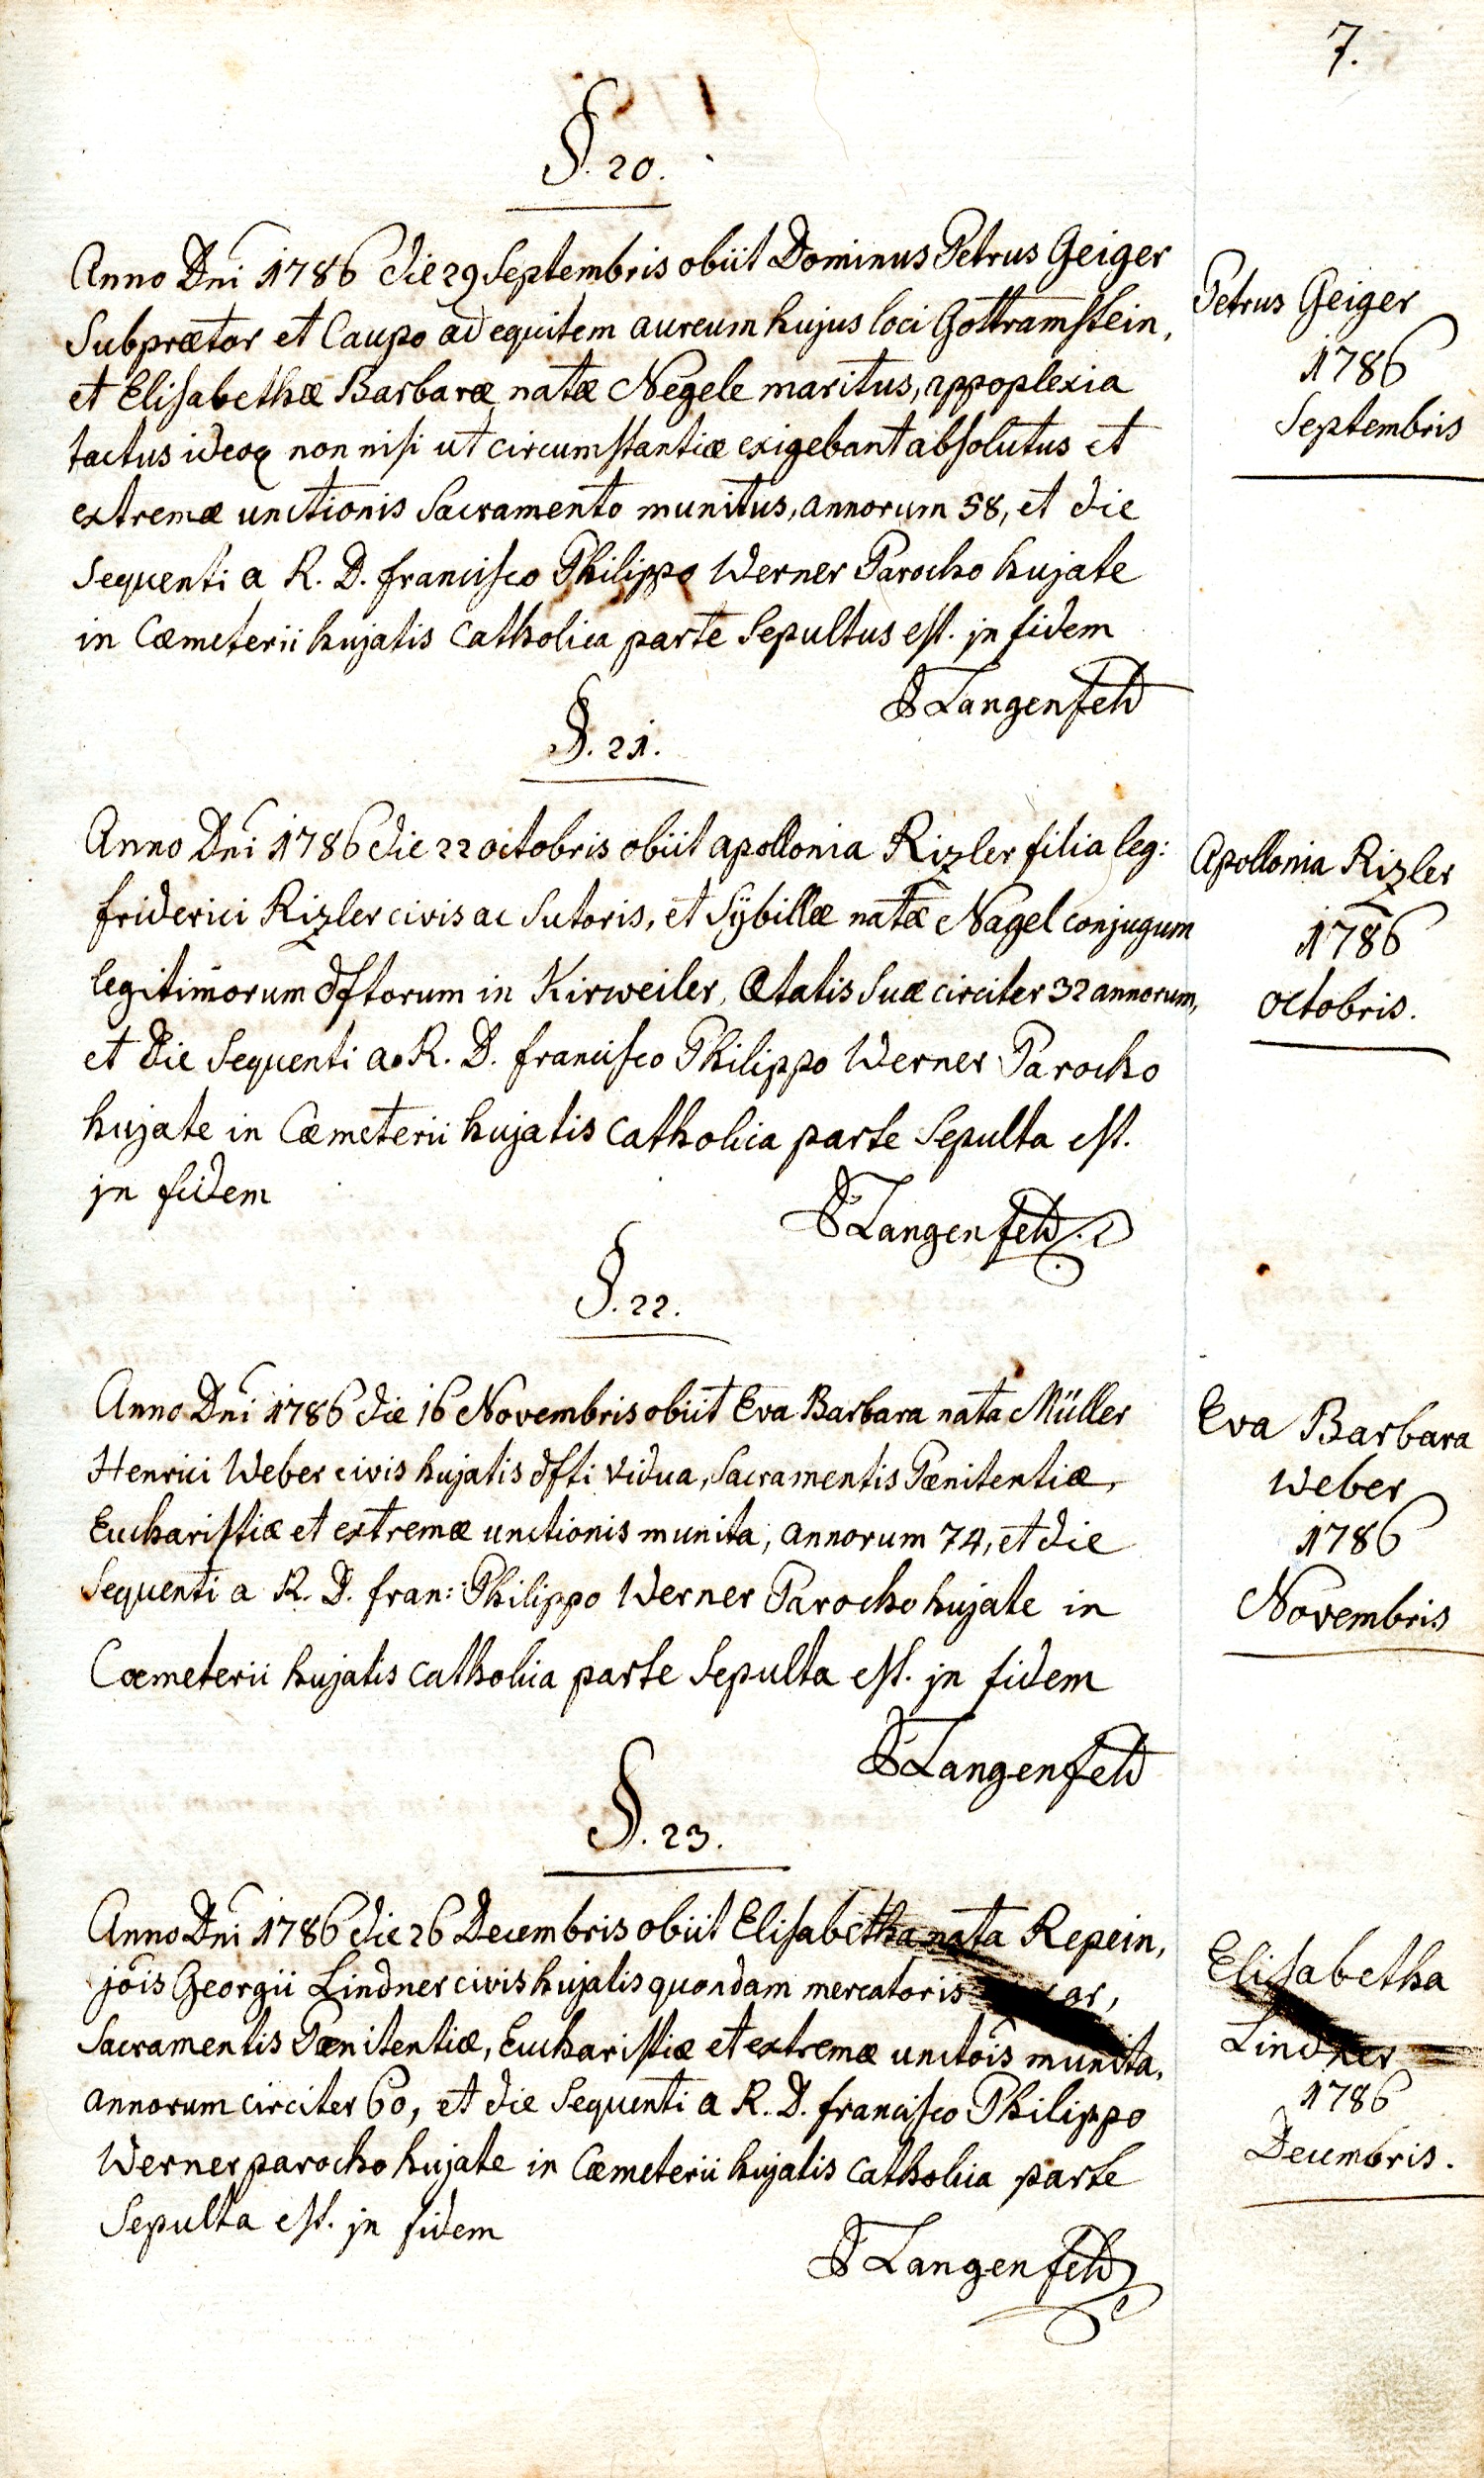 7.
§. 20.
Anno Dni 1786 die 29 Septembris obiit Dominus Petrus Geiger
Subprætor et Caupo ad equitem aureum hujus loci Gottramstein,
et Elisabethæ Barbaræ natæ Negele maritus, appoplexia
tactus ideoq non nisi ut circumstantiæ exigebant absolutus et
extremæ unctionis Sacramento munitus, annorum 58, et die
Sequenti a R. D. francisco Philippo Werner Parocho hujate
in Cæmeterii hujatis catholica parte Sepultus est. jn fidem
Langenfeld
Petrus Geiger
1786
Septembris
§. 21.
Anno Dni 1786 die 22 octobris obiit apollonia Rizler filia leg:
friderici Rizler civis ac Sutoris, et Sÿbillæ natæ Nagel conjugum
legitimorum dftorum in Kirweiler, Ætatis Suæ circiter 32 annorum,
et die Sequenti a R. D. francisco Philippo Werner Parocho
hujate in Cæmeterii hujatis catholica parte Sepulta est.
jn fidem
Langenfeld
Apollonia Rizler
1786
octobris.
§. 22.
Anno Dni 1786 die 16 Novembris obiit Eva Barbara nata Müller
Henrici Weber civis hujatis dfti vidua, Sacramentis Pænitentiæ,
Eucharistiæ et extremæ unctionis munita, annorum 74, et die
Sequenti a R. D. fran: Philippo Werner Parocho hujate in
Cœmeterii hujatis catholica parte Sepulta est. jn fidem
Langenfeld
Eva Barbara
Weber
1786
Novembris
§. 23.
Anno Dni 1786 die 26 Decembris obiit Elisabetha nata Repein,
jois Georgii Lindner civis hujatis quondam mercatoris
Sacramentis Pænitentiæ, Eucharistiæ et extremæ unctois munita,
annorum circiter 60, et die Sequenti a R. D. francisco Philippo
Werner parocho hujate in Cæmeterii hujatis catholica parte
Sepulta est. jn fidem
Langenfeld
Elisabetha
Lindner
1786
Decembris.